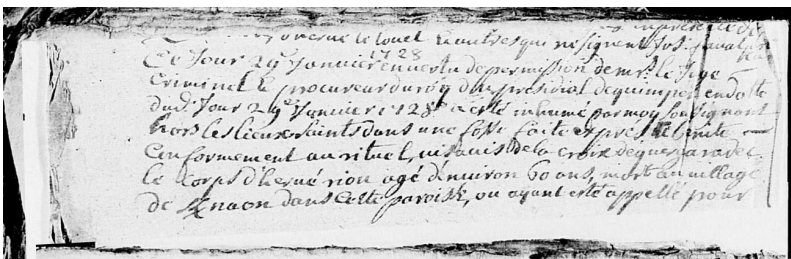 en presence de
le louet & autres qui ne signent
Ce Jour 29e Janvier 1728 en vertu de permission de mr. le Juge
Criminel & procureur du roy du presidial de quimper en datte
dudt Jour 29e Janvier 1728 a esté inhumé par moy soussignant
hors les lieux saints dans une fosse faite exprès & benite
Conformement au rituel, vis avis de la croix de
le corps d'hervé riou agé d'environ 60 ans, mort au village
de dans cette paroisse, ou ayant esté appellé pour